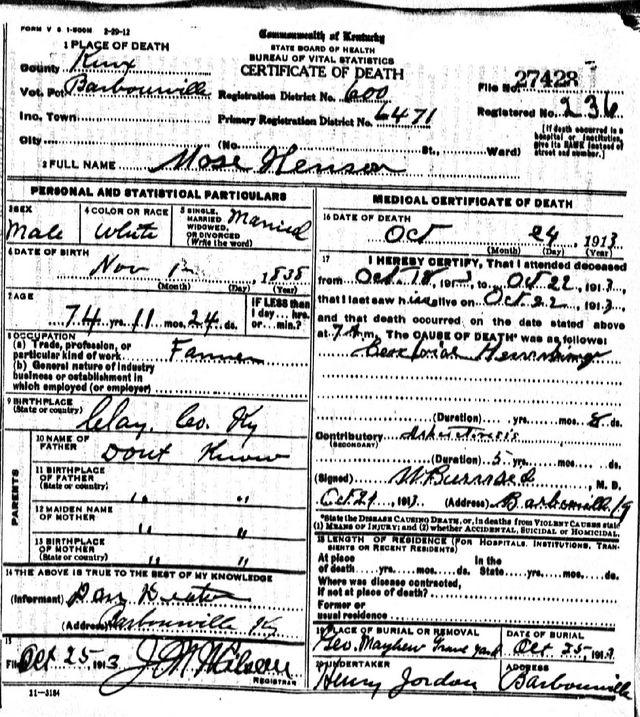 FORM V S 1-500M 2-29-12
Commonwealth of Kentucky
STATE BOARD OF HEALTH
BUREAU OF VITAL STATISTICS
CERTIFICATE OF DEATH
1 PLACE OF DEATH
County Knox
Vot. Pct Barbourville
Inc. Town
City
Registration District No. 600
Primary Registration District No. 6471
(No. St., Ward)
File No. 27428
Registered No. 236
[If death occurred in a
hospital or institution,
give its NAME instead of
street and number.]
2 FULL NAME Mose Henson
PERSONAL AND STATISTICAL PARTICULARS
3 SEX
Male
4 COLOR OR RACE
White
5 SINGLE,
MARRIED
WIDOWED,
OR DIVORCED
(Write the word)
Married
6 DATE OF BIRTH
Nov 1838
(Month) (Day) (Year)
7 AGE
74 yrs. 11 mos. 24 ds.
IF LESS than
1 day... hrs.
or... min.?
8 OCCUPATION
(a) Trade, profession, or
particular kind of work Farmer
(b) General nature of industry
business or establishment in
which employed (or employer)
9 BIRTHPLACE
(State or country)
Clay. Co. Ky
PARENTS
10 NAME OF
FATHER
Dont Know
11 BIRTHPLACE
OF FATHER
(State or country)
" "
12 MAIDEN NAME
OF MOTHER
" "
13 BIRTHPLACE
OF MOTHER
(State or country)
" "
14 THE ABOVE IS TRUE TO THE BEST OF MY KNOWLEDGE
(Informant)
(Address) Barbourville Ky
15
Filed Oct 25 1913
REGISTRAR
11-3184
MEDICAL CERTIFICATE OF DEATH
16 DATE OF DEATH
Oct 24, 1913
(Month) (Day) (Year)
17 I HEREBY CERTIFY, That I attended deceased
from Oct 18, 1913, to Oct 22, 1913,
that I last saw him alive on Oct 22, 1913,
and that death occurred on the date stated above
at 7 A m. The CAUSE OF DEATH* was as follows:
(Duration) yrs. mos. 8 ds.
Contributory
(SECONDARY)
(Duration) 5 yrs. mos. ds.
(Signed) M. D.
Oct. 24 1913 (Address) Barbourville Ky
*State the DISEASE CAUSING DEATH, or, in deaths from VIOLENT CAUSES state
(1) MEANS OF INJURY; and (2) whether ACCIDENTAL, SUICIDAL or HOMICIDAL.
18 LENGTH OF RESIDENCE (FOR HOSPITALS, INSTITUTIONS, TRANSIENTS OR RECENT RESIDENTS)
At place
of death yrs. mos. ds.
In the
State yrs. mos. ds.
Where was disease contracted,
If not at place of death?
Former or
usual residence
19 PLACE OF BURIAL OR REMOVAL
Geo. Mayhew Grave yard
DATE OF BURIAL
Oct 25, 1913
20 UNDERTAKER
Henry Jordon
ADDRESS
Barbourville